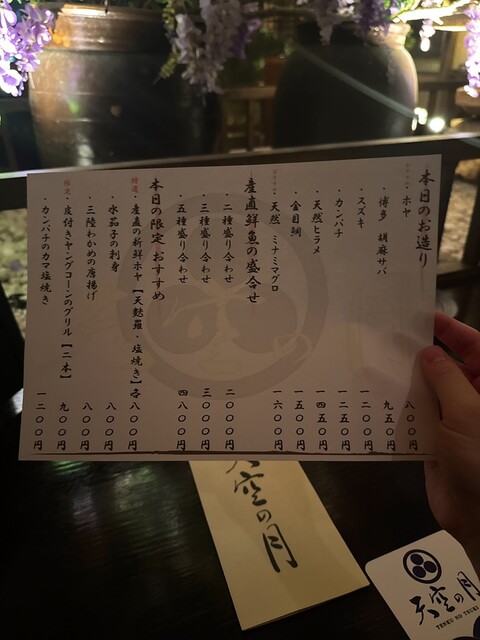 本日のお造り
ホヤ 八〇〇円
博多 胡麻サバ 九五〇円
スズキ 一二〇〇円
カンパチ 一二五〇円
天然ヒラメ 一四五〇円
金目鯛 一五〇〇円
天然 ミナミマグロ 一六〇〇円
産直鮮魚の盛合せ
・二種盛り合わせ 二〇〇〇円
・三種盛り合わせ 三〇〇〇円
・五種盛り合わせ 四八〇〇円
本日の限定おすすめ
・産直の新鮮ホヤ【天麩羅・塩焼き】各八〇〇円
・水茄子の刺身 八〇〇円
・三陸わかめの唐揚げ 八〇〇円
・皮付きヤングコーンのグリル【二本】 九〇〇円
・カンパチのカマ塩焼き 一二〇〇円
天空の月
天空の月
TENKU NO TSUKI